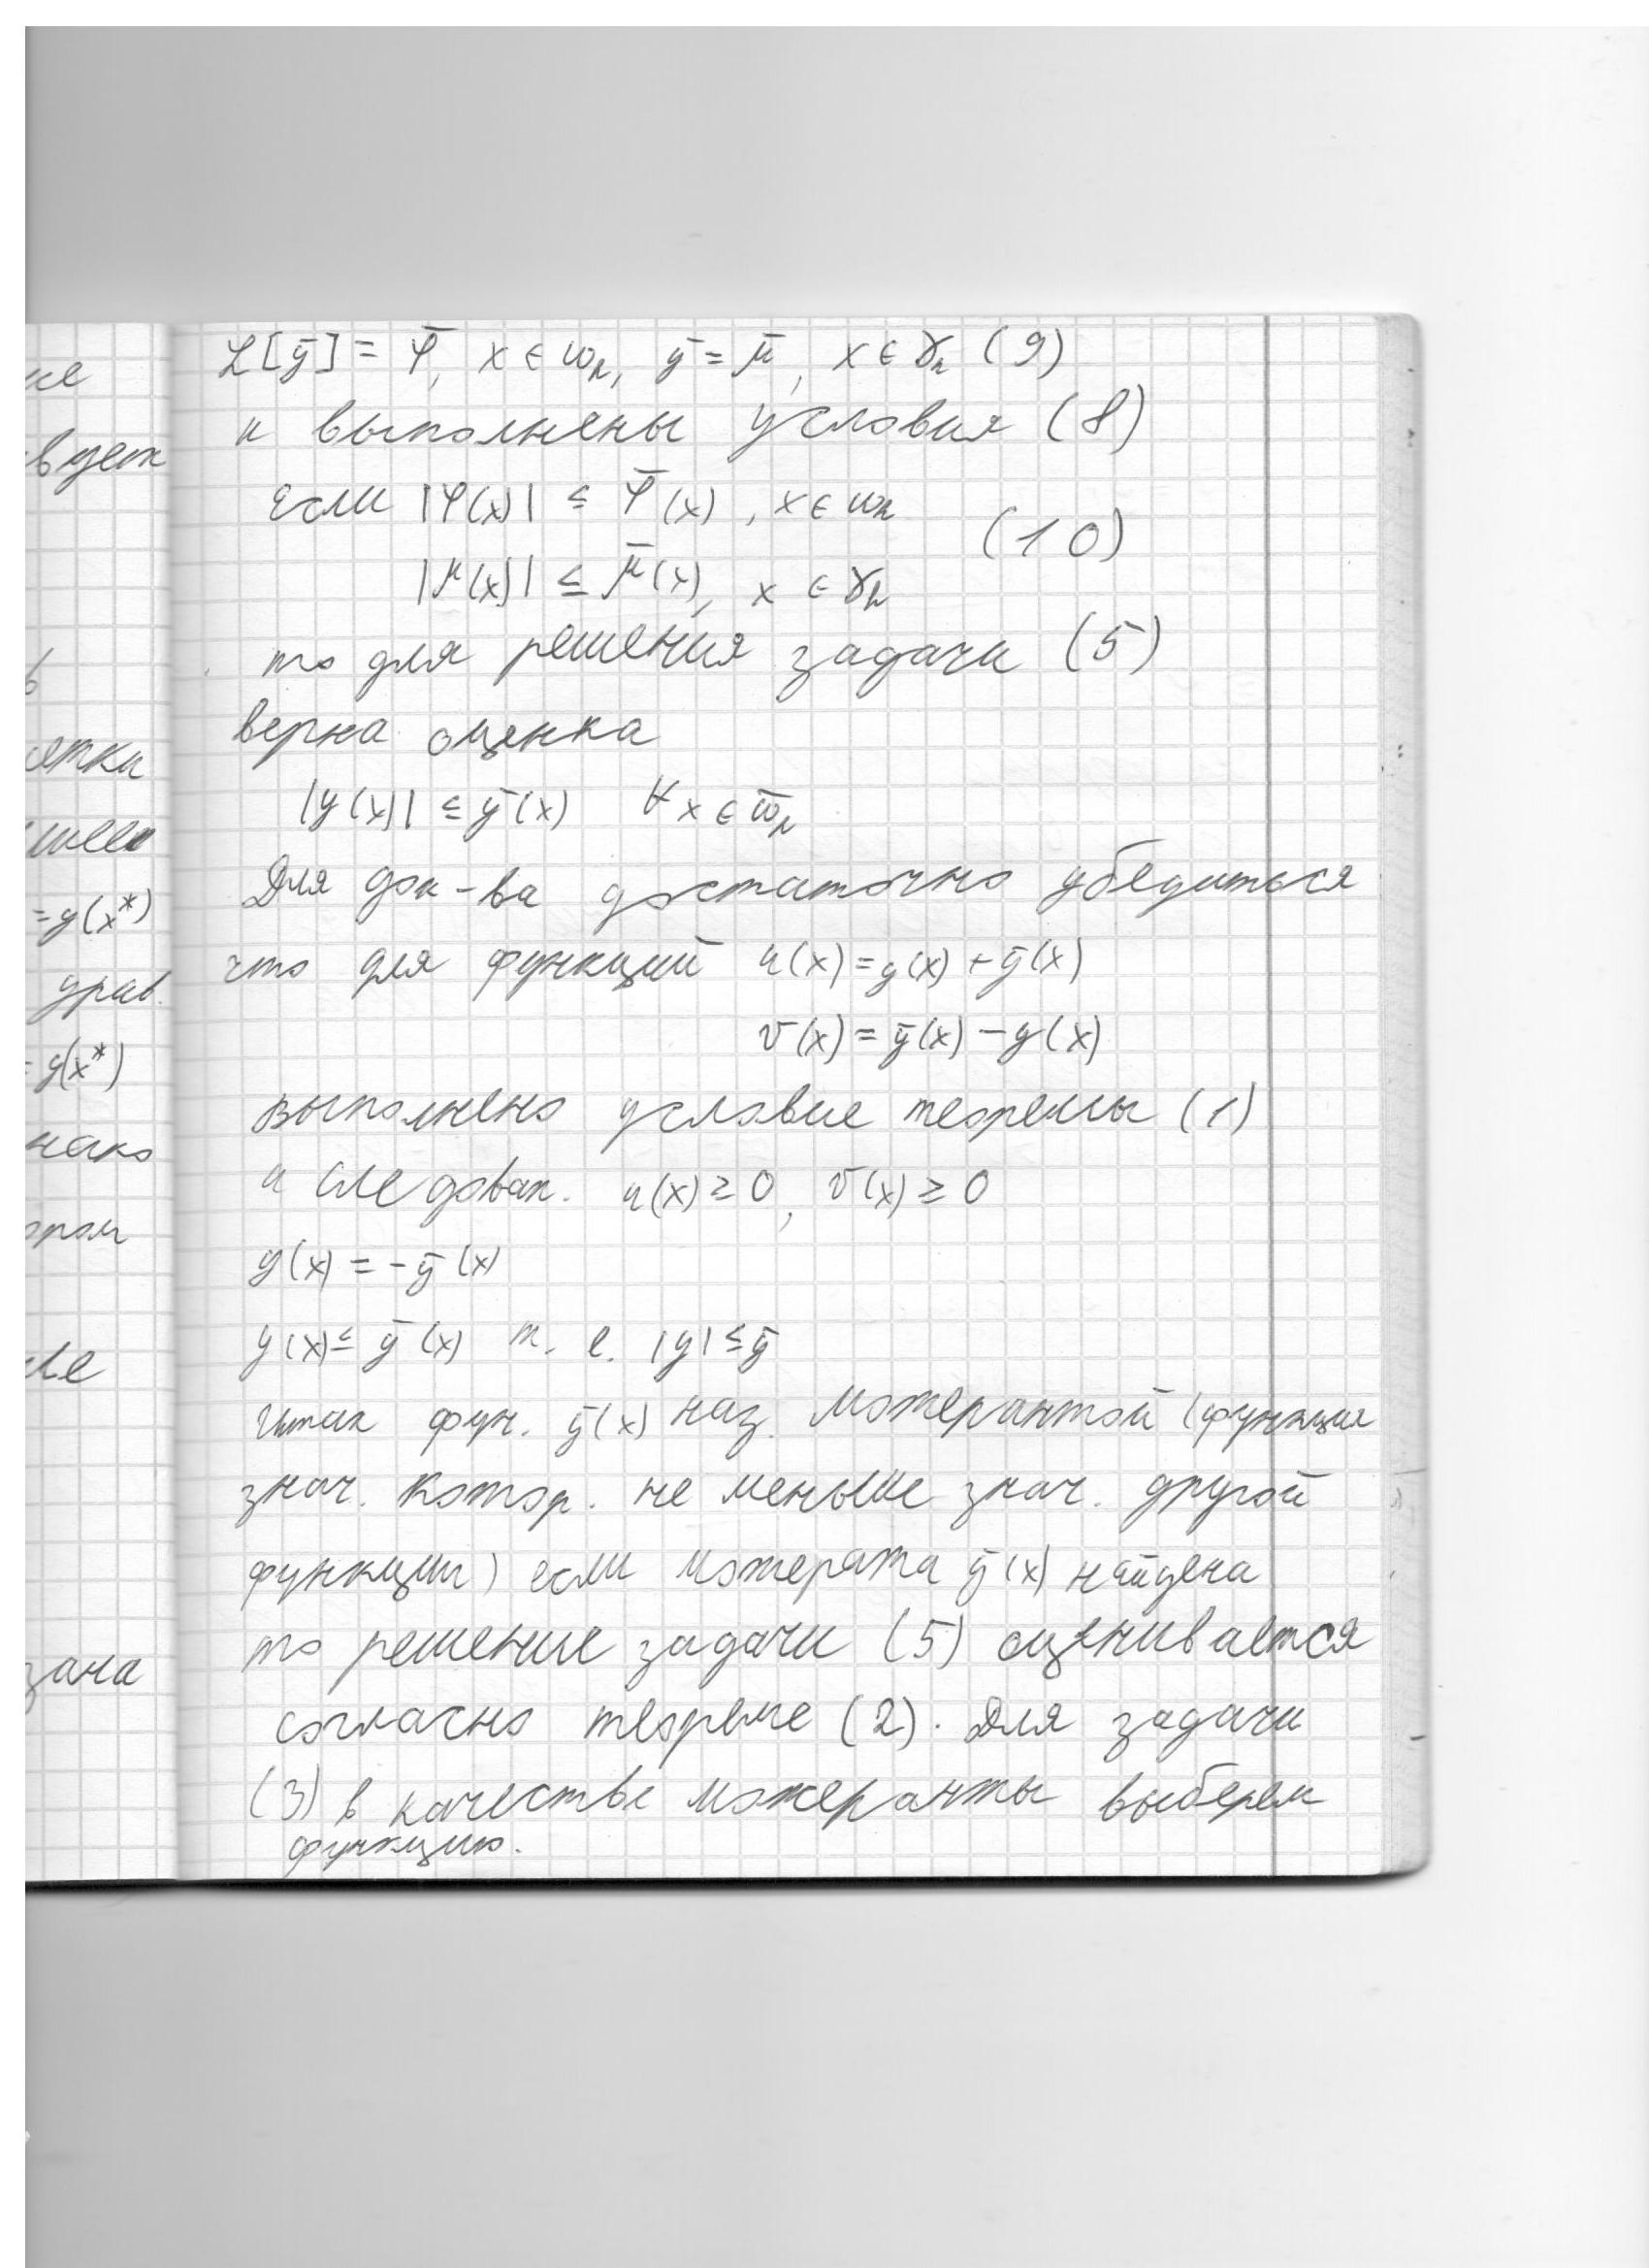 ие
вует
ь
етки
=y(x*)
урав.
=y(x*)
нако
ором
зана
L[ȳ] = φ̄, x ∈ ω_h, ȳ = μ̄, x ∈ γ_h (9)
и выполнены условия (8)
если |φ(x)| ≤ φ̄(x), x ∈ ω_h
(10)
|μ(x)| ≤ μ̄(x), x ∈ γ_h
то для решения задачи (5)
верна оценка
|y(x)| ≤ ȳ(x) ∀ x ∈ ω̄_h
Для док-ва достаточно убедиться
что для функций u(x) = y(x) + ȳ(x)
v(x) = ȳ(x) - y(x)
выполнено условие теоремы (1)
и следоват. u(x) ≥ 0, v(x) ≥ 0
y(x) = -ȳ(x)
y(x) ≤ ȳ(x) т. е. |y| ≤ ȳ
итак фун. ȳ(x) наз. мажерантой (функция
знач. котор. не меньше знач. другой
функции) если мажерата ȳ(x) найдена
то решение задачи (5) оценивается
согласно теореме (2). Для задачи
(3) в качестве мажеранты выберем
функцию.